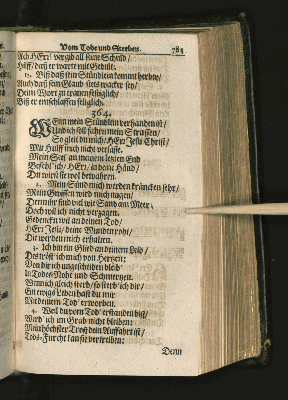 Vom Tode und Sterben. 783
Ach HErr vergib all seine Schuld/
Hilff/ daß er warte mit Gedult:
12. Biß daß sein Stündlein kommt herbey/
Auch daß sein Glaub stets wacker sey/
Dein Wort zu trauen festiglich/
Biß er entschlaffen seliglich.
364.
WEnn mein Stündlein verhanden ist/
Und ich soll fahrn mein Strassen/
So gleit du mich/ HErr JEsu Christ/
Mit Hülff mich nicht verlasse.
Mein Seel an meinem letzten End
Befehl ich/ HErr/ in deine Händ/
Du wirst sie wol bewahren.
2. Mein Sünd mich werden kräncken sehr/
Mein Gewissen wird mich nagen/
Denn ihr sind viel wie Sand am Meer:
Doch wil ich nicht verzagen.
Gedencken wil an deinen Tod/
HErr JEsu/ deine Wunden roht/
Die werden mich erhalten.
3. Ich bin ein Glied an deinem Leib/
Des tröst ich mich von Hertzen:
Von dir ich ungescheiden bleib
In Todes-Noht und Schmertzen.
Wenn ich gleich sterb/ so sterb ich dir/
Ein ewigs Leben hast du mir
Mit deinem Tod erworben.
4. Weil du vom Tod erstanden bist/
Werd ich im Grab nicht bleiben:
Mein höchster Trost dein Auffahrt ist/
Tods-Furcht kan sie vertreiben:
Denn